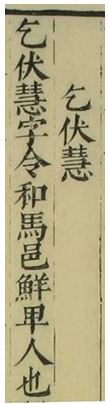 乞伏慧
乞伏慧字令和馬邑鮮卑人也